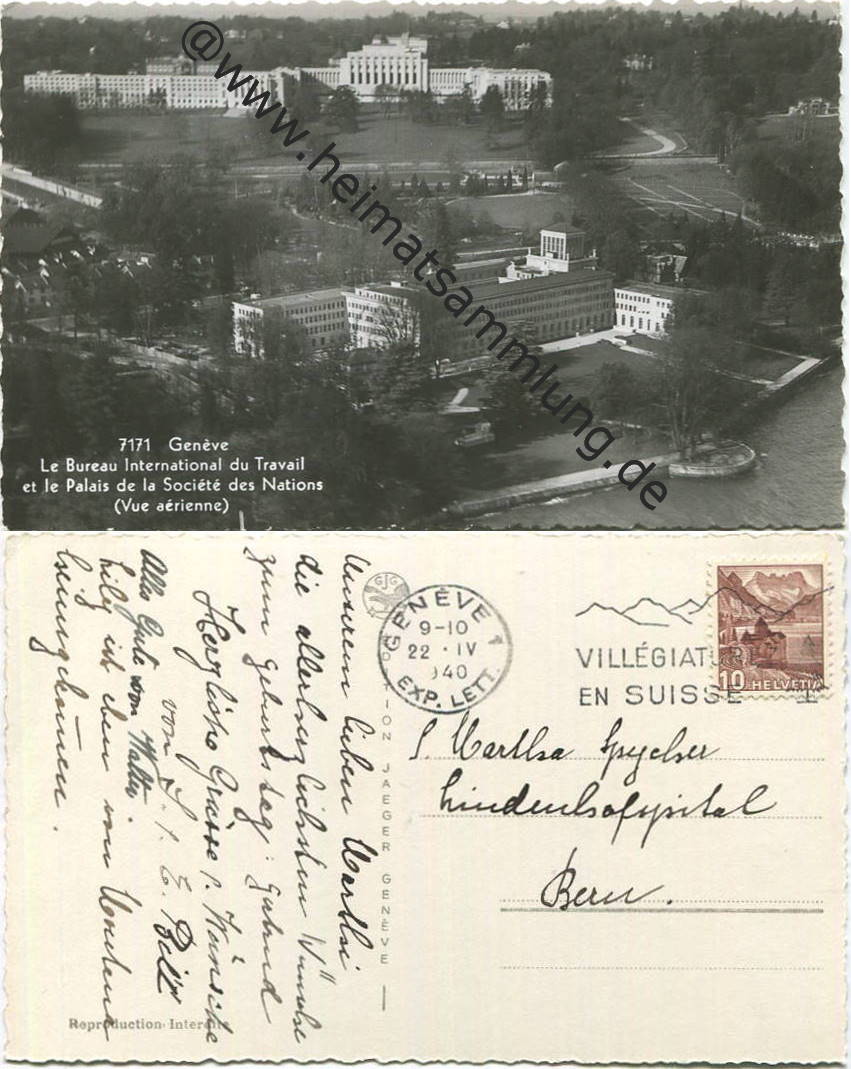 @www.heimatsammlung.de
7171 Genève
Le Bureau International du Travail
et le Palais de la Société des Nations
(Vue aérienne)
Unserem lieben Marthi
die allerherzlichsten Wünsche
zum Geburtstag
Herzliche Grüsse & Wünsche
von
Alles Gute vom Walter.
eben von
heimgekommen.
Reproduction Interdite
JAEGER GENÈVE
GJG
GENÈVE 1
9-10
22 . IV
1940
EXP. LETT.
VILLÉGIATURE
EN SUISSE
10 HELVETIA
S. Martha Spycher
Lindenhofspital
Bern.